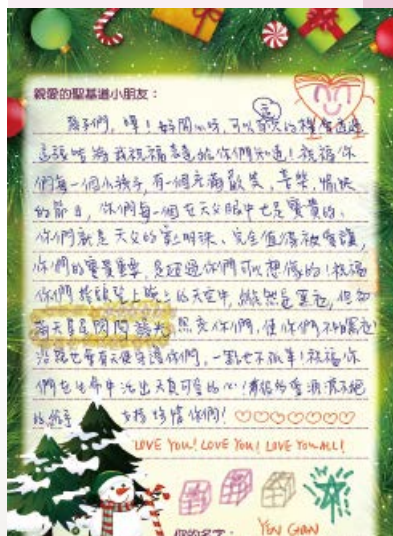 親愛的聖基道小朋友：
孩子們，嗨！好開心呀，可以有這的機會透過
這張卡片將我祝福送給你們知道！祝福你
們每一個小孩子，有一個充滿歡笑、喜樂、愉快
的節日，你們每一個在天父眼中也是寶貴的，
你們就是天父的掌上明珠、完全值得被愛護，
你們的寶貴重要，是超過你們可以想像的！祝福
你們抬頭望上晚上的天空中，縱然是黑色，但卻
滿天星星閃閃發光，照亮你們，使你們不怕黑色
沿路也會有天使守護你們，一點也不孤單！祝福你
們在生命中活出天真可愛的心！
的給予 去擁抱你們！♡♡♡♡♡♡♡
LOVE YOU! LOVE YOU! LOVE YOU ALL!
你的名字： YEN CHAN